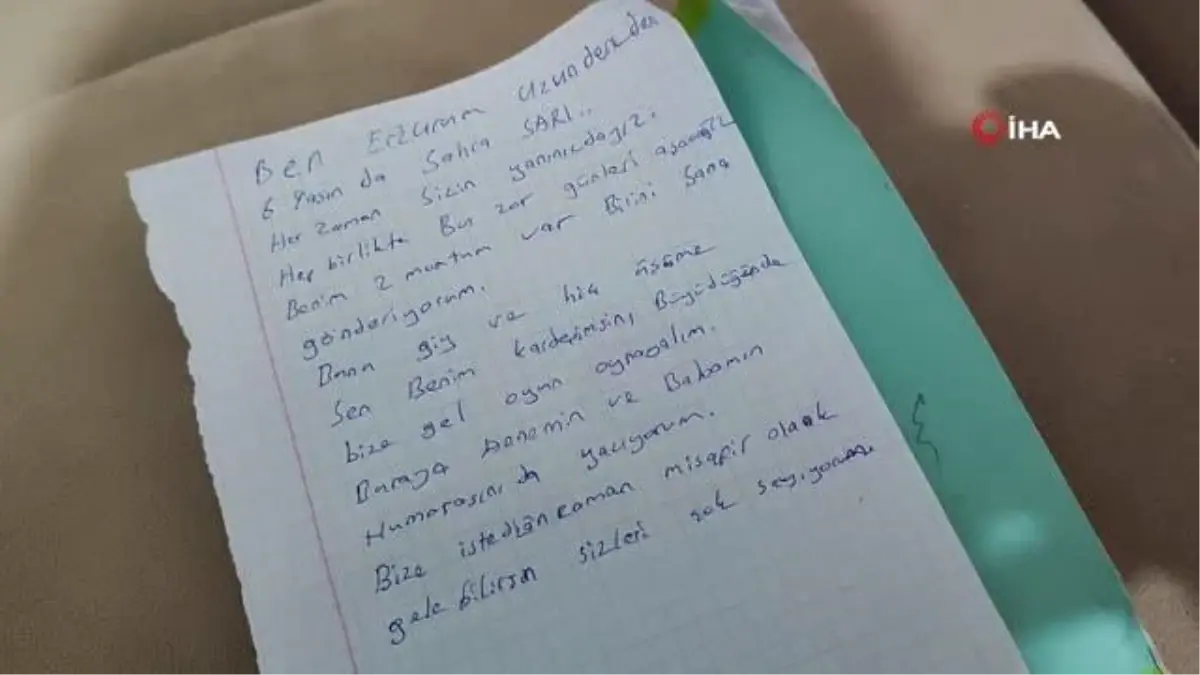 Ben Erzurum Uzundereden
6 Yaşın da Sahra SARI..
Her zaman sizin yanınızdayız.
Hep birlikte Bu zor günleri aşacağız
Benim 2 montum var Birini Sana
gönderiyorum.
Bunu giy ve hiç üşüme
Sen Benim kardeşimsin, Büyüdüğünde
bize gel oyun oynayalım.
Buraya Annemin ve Babamın
Numarasını da yazıyorum.
Bize istediğin zaman misafir olarak
gele bilirsin sizleri çok seviyorum
İHA